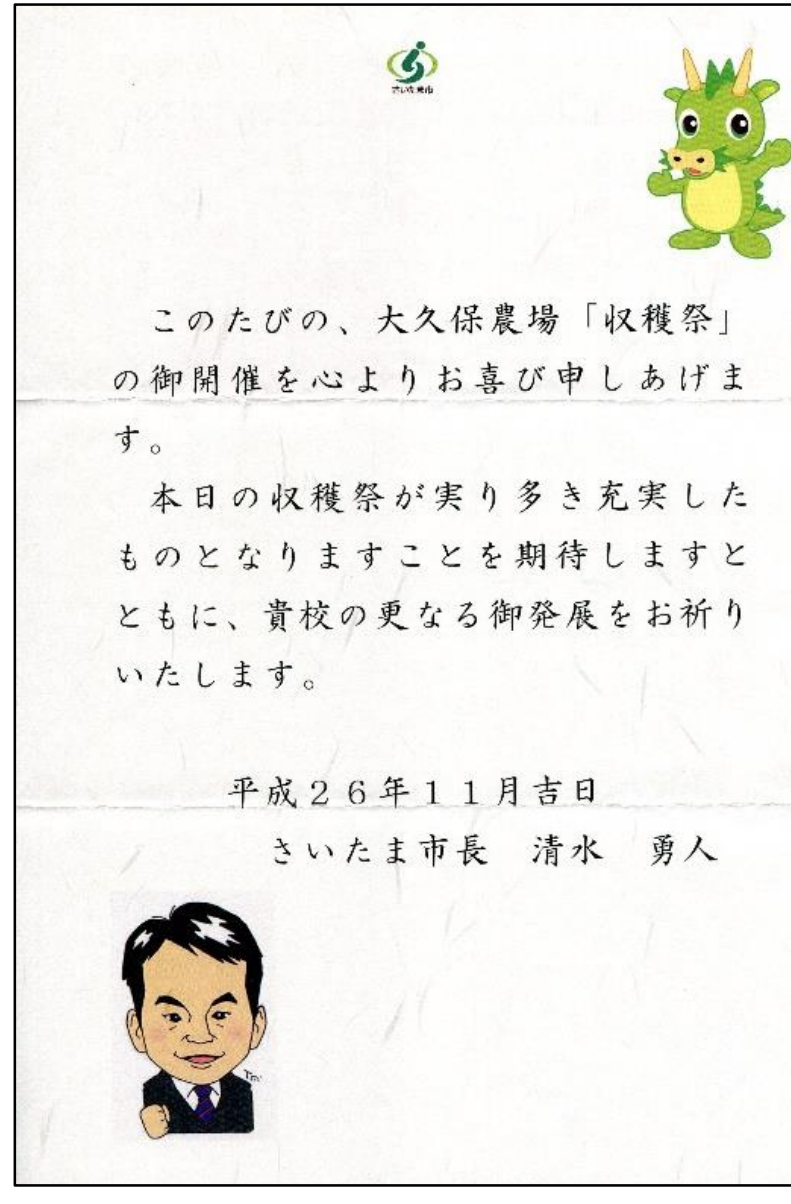 さいたま市
このたびの、大久保農場「収穫祭」
の御開催を心よりお喜び申しあげま
す。
本日の収穫祭が実り多き充実した
ものとなりますことを期待しますと
ともに、貴校の更なる御発展をお祈り
いたします。
平成26年11月吉日
さいたま市長　清水　勇人